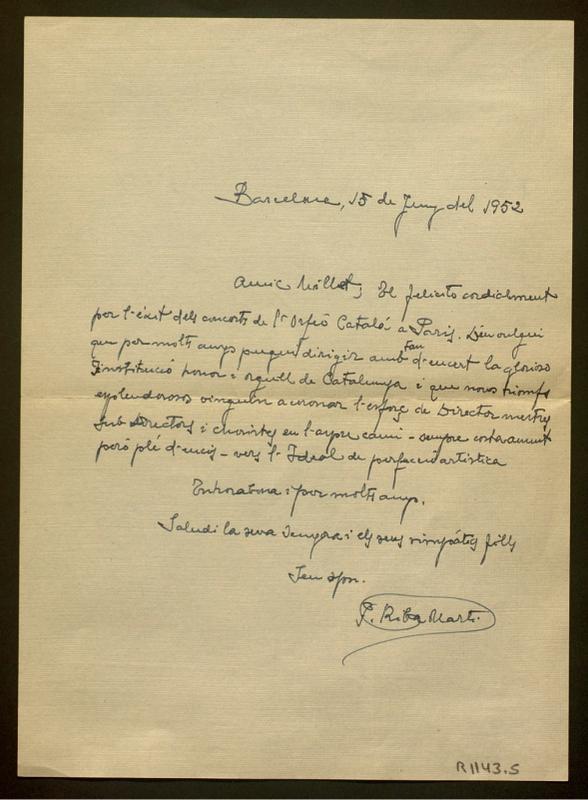 Barcelona, 15 de Juny del 1952
Amic Millet; El felicito cordialment
per l'éxit dels concerts de l'Orfeó Catalá a París. Deu vulgui
que per molts anys pugui dirigir amb tan d'encert la gloriosa
Institució honor i orgull de Catalunya i que nous triomfs
esplendorosos vinguin a coronar l'esforç de Director mestres
sub Directors i choristes en l'aspre camí - sempre costa amunt
peró plé d'encis - vers l'Ideal de perfecció artistica
Enhorabona i per molts anys.
Saludi la seva Senyora i els seus simpátics fills
Seu afm.
P. Riba Martí.
R1143.S